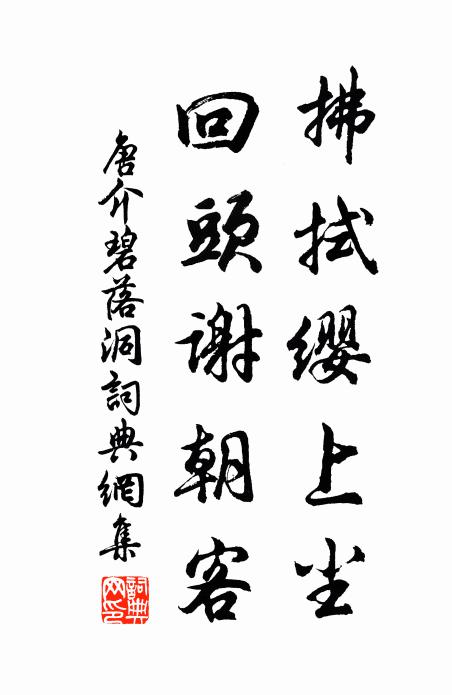 拂拭缨上尘
回頭谢朝客
唐介碧落洞詞典網集
詞典網印